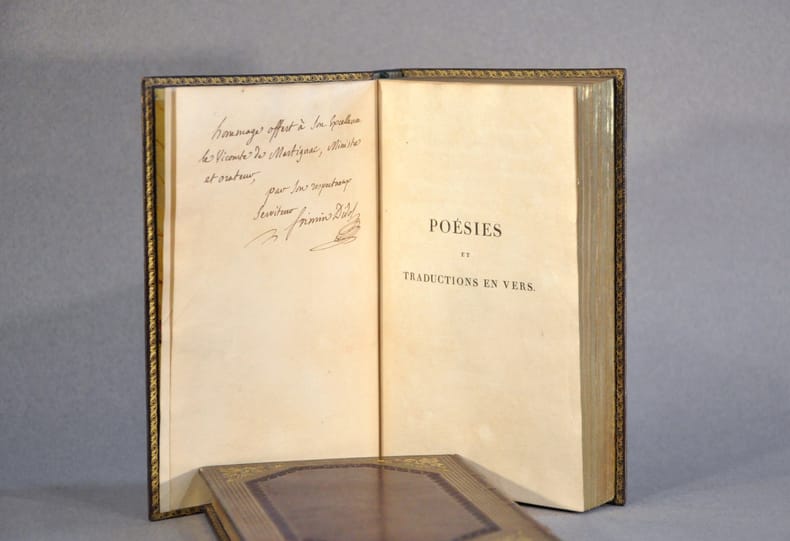 hommage offert à Son Excellence
le Vicomte de Martignac, Ministre
et orateur,
par Son respectueux
Serviteur firmin Didot
POÉSIES
ET
TRADUCTIONS EN VERS.